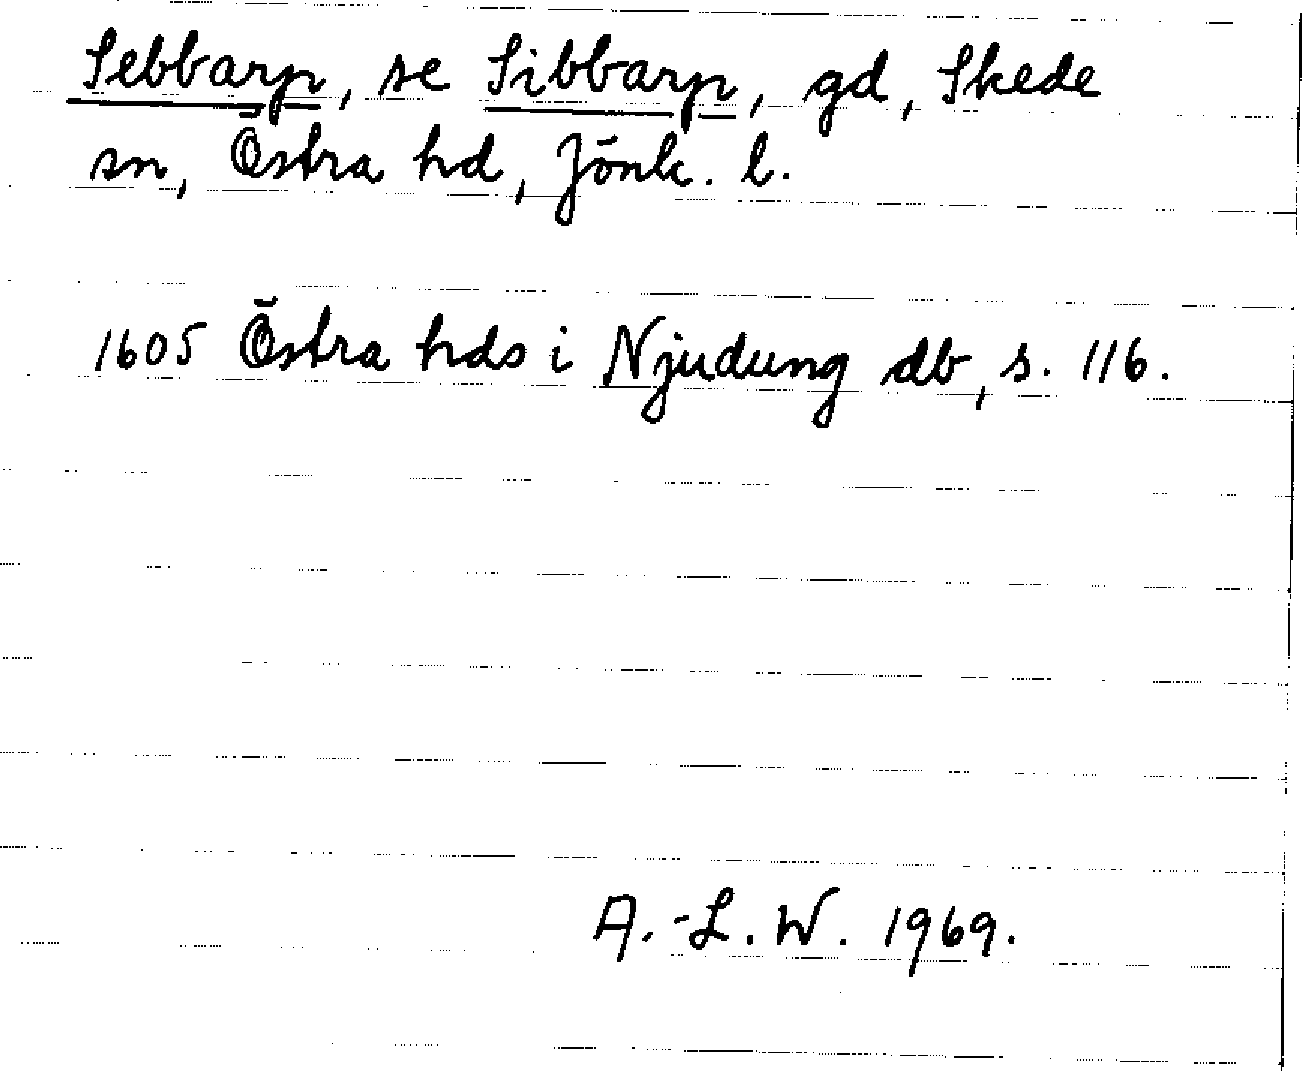 Sebbarp, se Sibbarp, gd, Skede
sn, Östra hd, Jönk. l.
1605 Östra hds i Njudung db, s. 116.
A.-L. W. 1969.